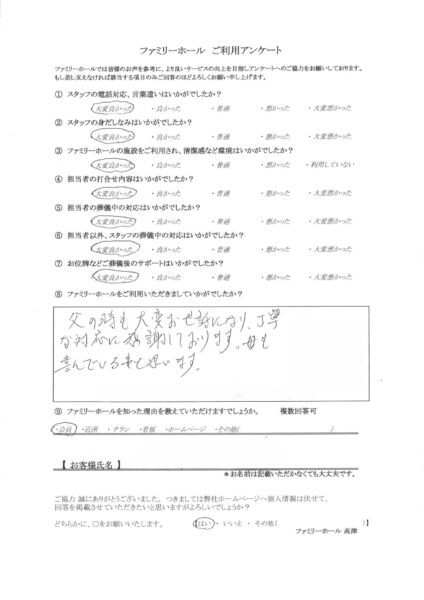 ファミリーホール ご利用アンケート
ファミリーホールでは皆様のお声を参考に、より良いサービスの向上を目指しアンケートへのご協力をお願いしております。
もし差し支えなければ該当する項目のみご回答のほどよろしくお願い申し上げます。
① スタッフの電話対応、言葉遣いはいかがでしたか？
大変良かった ・良かった ・普通 ・悪かった ・大変悪かった
② スタッフの身だしなみはいかがでしたか？
大変良かった ・良かった ・普通 ・悪かった ・大変悪かった
③ ファミリーホールの施設をご利用され、清潔感など環境はいかがでしたか？
大変良かった ・良かった ・普通 ・悪かった ・利用していない
④ 担当者の打合せ内容はいかがでしたか？
大変良かった ・良かった ・普通 ・悪かった ・大変悪かった
⑤ 担当者の葬儀中の対応はいかがでしたか？
大変良かった ・良かった ・普通 ・悪かった ・大変悪かった
⑥ 担当者以外、スタッフの葬儀中の対応はいかがでしたか？
大変良かった ・良かった ・普通 ・悪かった ・大変悪かった
⑦ お位牌などご葬儀後のサポートはいかがでしたか？
大変良かった ・良かった ・普通 ・悪かった ・大変悪かった
⑧ ファミリーホールをご利用いただきましていかがでしたか？
父の時も大変お世話になり、丁寧
な対応に感謝しております。母も
喜んでいる事と思います。
⑨ ファミリーホールを知った理由を教えていただけますでしょうか。 複数回答可
・会員 ・近所 ・チラシ ・看板 ・ホームページ ・その他( )
【 お客様氏名 】
＊お名前は記載いただかなくても大丈夫です。
ご協力 誠にありがとうございました。つきましては弊社ホームページへ個人情報は伏せて、
回答を掲載させていただきたいと思いますがよろしいでしょうか？
どちらかに、〇をお願いいたします。 【はい ・ いいえ ・ その他( )】
ファミリーホール 高津